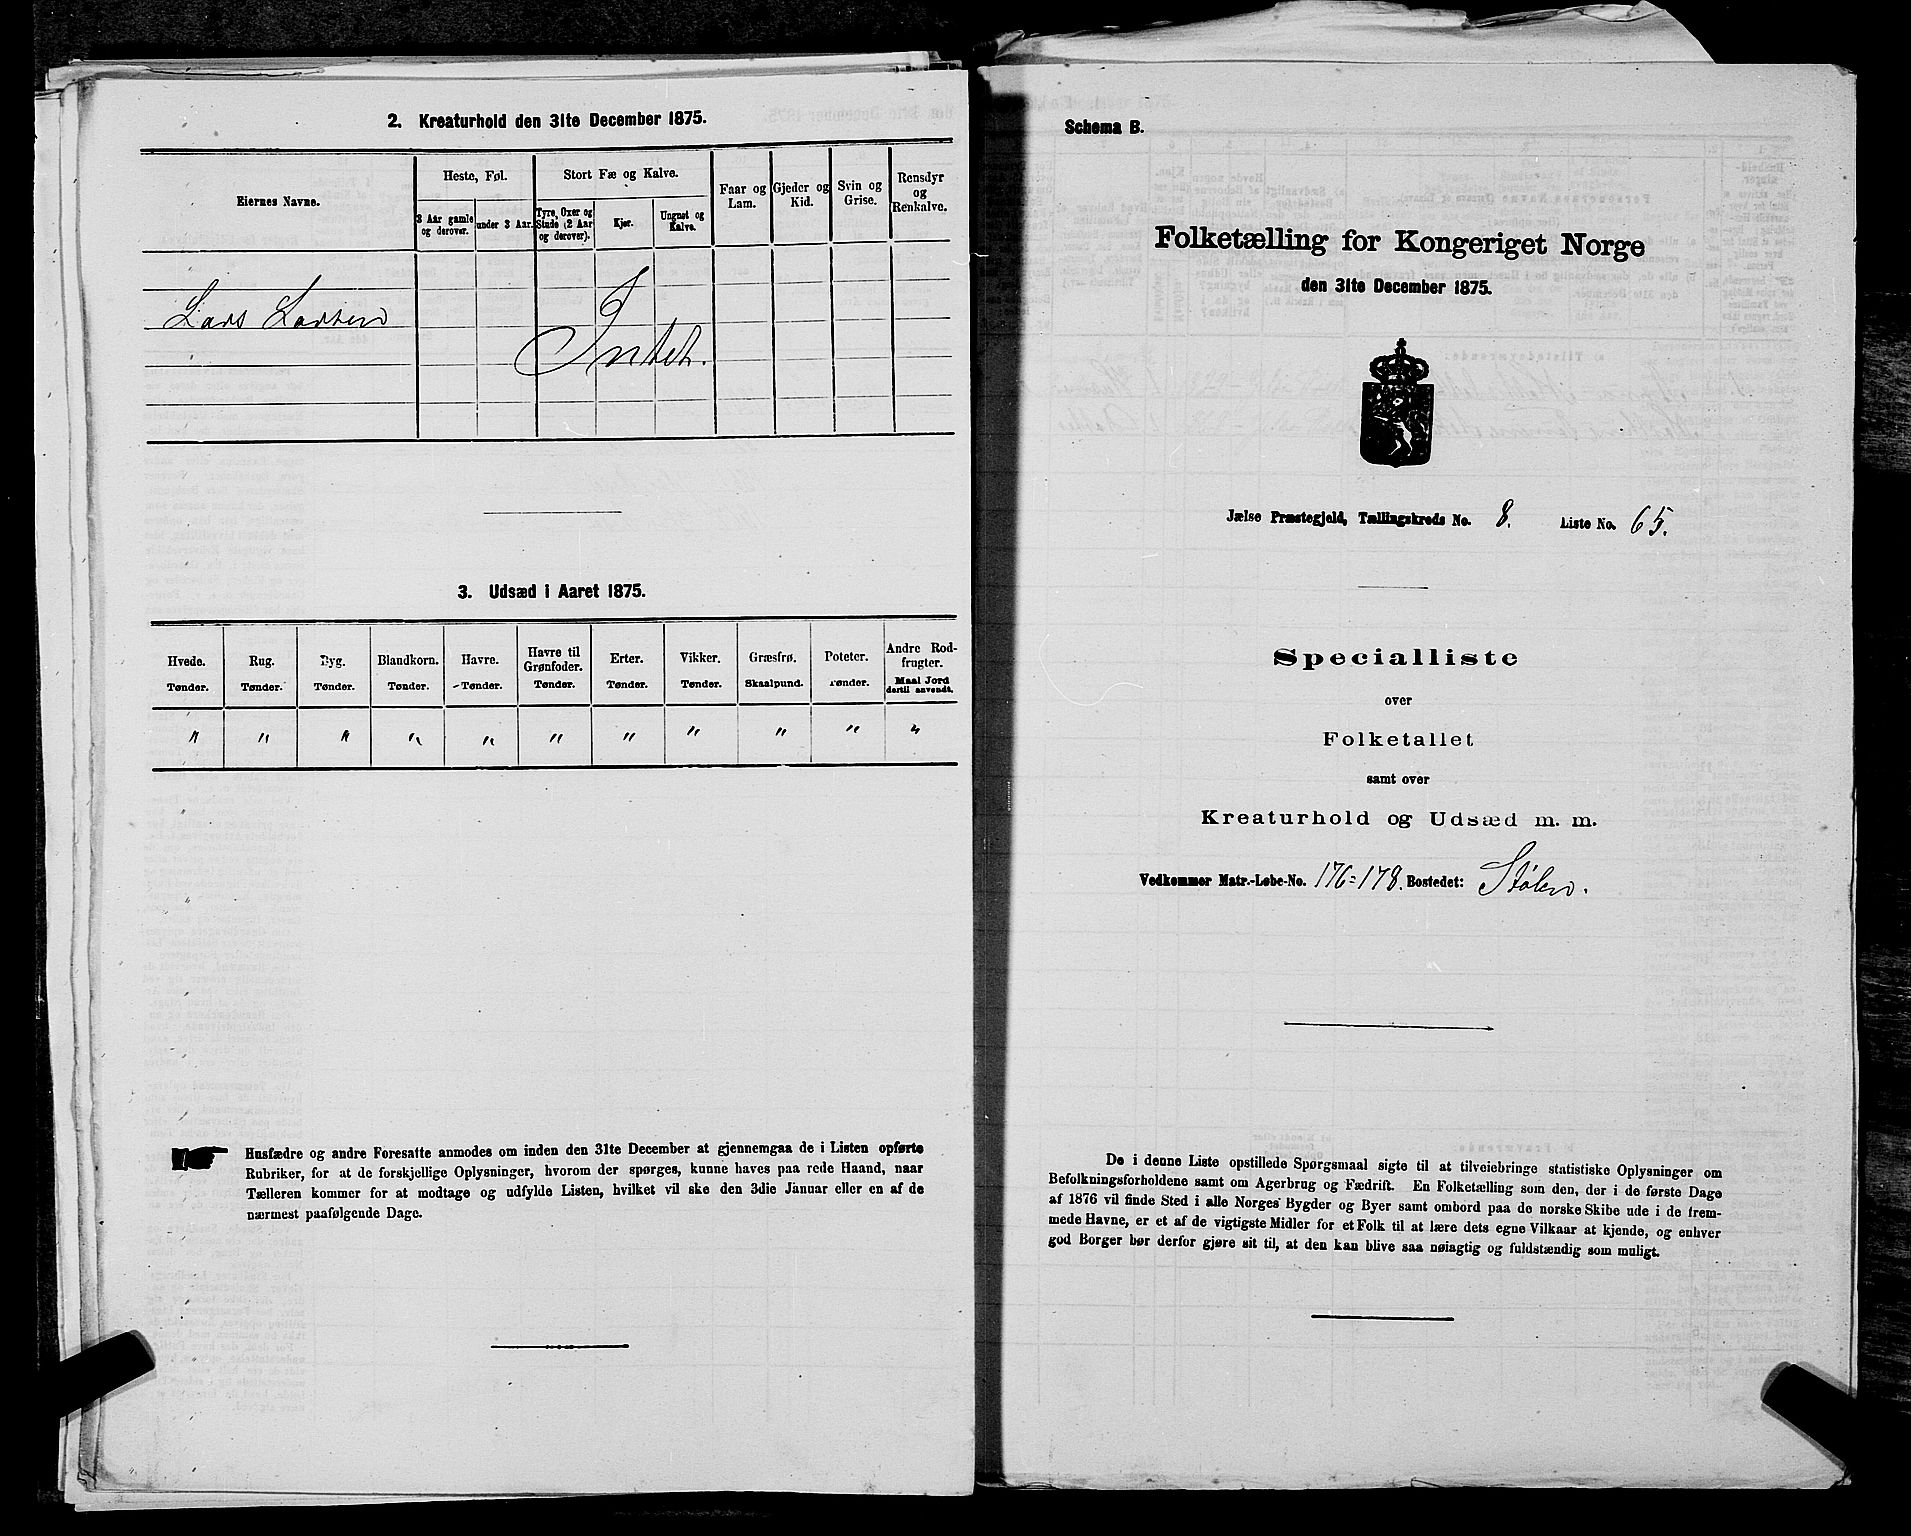 2. Kreaturhold den 31te December 1875.
Eiernes Navne.
Heste, Føl.
Stort Fæ og Kalve.
Faar og Lam.
Gjeder og Kid.
Svin og Grise.
Rensdyr og Renkalve.
3 Aar gamle og derover.
under 3 Aar.
Tyre, Oxer og Stude (2 Aar og derover).
Kjør.
Ungnøt og Kalve.
Lars Larsen
Intet.
3. Udsæd i Aaret 1875.
Hvede. Rug. Byg. Blandkorn. Havre. Havre til Grønfoder. Erter. Vikker. Græsfrø. Poteter. Andre Rodfrugter.
Tønder. Tønder. Tønder. Tønder. Tønder. Tønder. Tønder. Tønder. Skaalpund. Tønder. Maal Jord dertil anvendt.
" " " " " " " " " " "
Husfædre og andre Foresatte anmodes om inden den 31te December at gjennemgaa de i Listen opførte
Rubriker, for at de forskjellige Oplysninger, hvorom der spørges, kunne haves paa rede Haand, naar
Tælleren kommer for at modtage og udfylde Listen, hvilket vil ske den 3die Januar eller en af de
nærmest paafølgende Dage.
Schema B.
Folketælling for Kongeriget Norge
den 31te December 1875.
Jælse Præstegjeld, Tællingskreds No. 8. Liste No. 65.
Specialliste
over
Folketallet
samt over
Kreaturhold og Udsæd m. m.
Vedkommer Matr.-Løbe-No. 176=178. Bostedet: Stølen.
De i denne Liste opstillede Spørgsmaal sigte til at tilveiebringe statistiske Oplysninger om
Befolkningsforholdene samt om Agerbrug og Fædrift. En Folketælling som den, der i de første Dage
af 1876 vil finde Sted i alle Norges Bygder og Byer samt ombord paa de norske Skibe ude i de frem-
mede Havne, er et af de vigtigste Midler for et Folk til at lære dets egne Vilkaar at kjende, og enhver
god Borger bør derfor gjøre sit til, at den kan blive saa nøiagtig og fuldstændig som muligt.